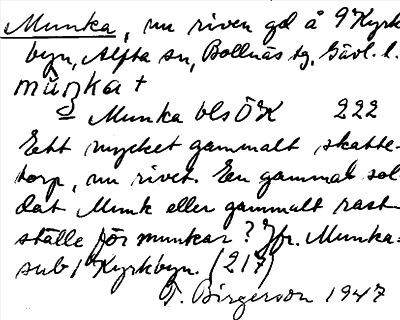 Munka, nu riven gd å 9 Kyrk
byn, Alfta sn, Bollnäs tg, Gävl. l.
muŋka +
= Munka bls ÖK 222
Ett mycket gammalt skatte-
torp, nu rivet. En gammal sol-
dat Munk eller gammalt rast-
ställe för munkar? Jfr. Munka-
sub/ Kyrkbyn. (217)
T. Birgerson 1947